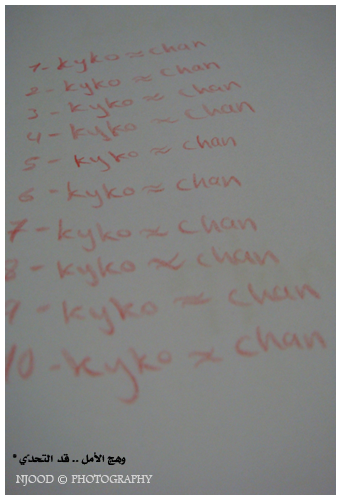 1- kyko ≈ chan
2- kyko ≈ chan
3- kyko ≈ chan
4- kyko ≈ chan
5- kyko ≈ chan
6- kyko ≈ chan
7- kyko ≈ chan
8- kyko ≈ chan
9- kyko ≈ chan
10-kyko ≈ chan
وهج الأمل .. قد التحدي *
NJOOD © PHOTOGRAPHY